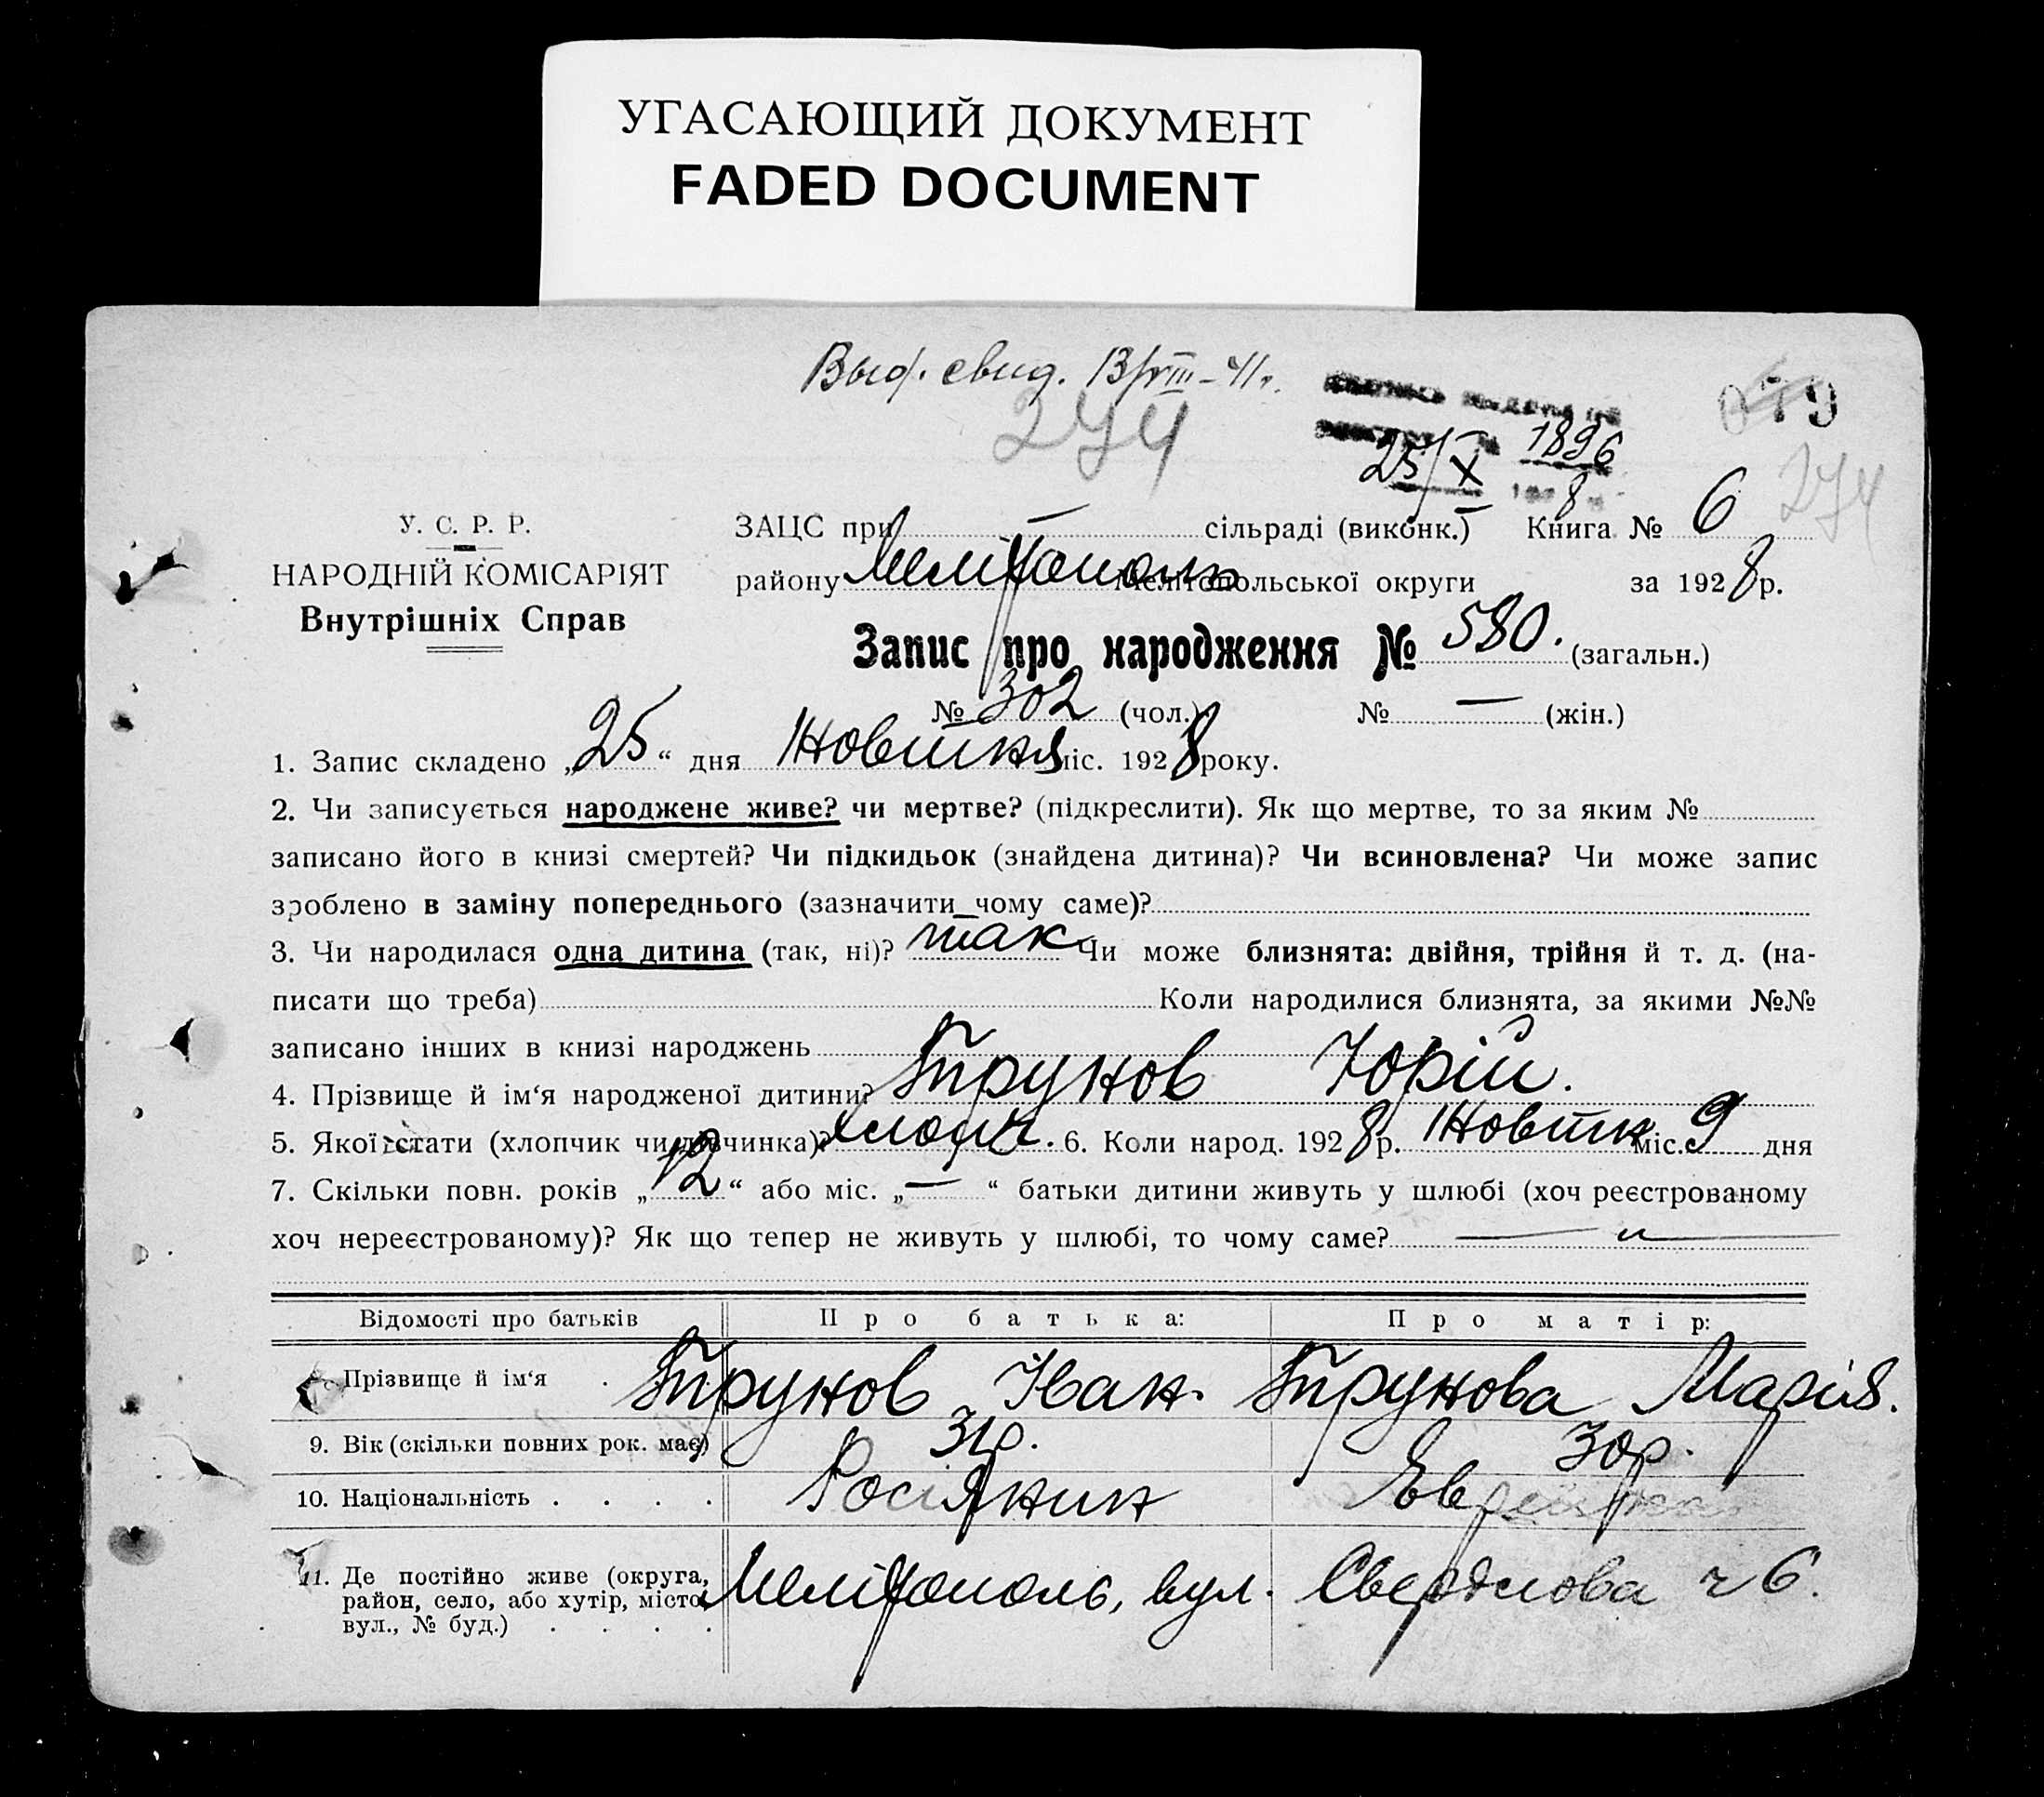 УГАСАЮЩИЙ ДОКУМЕНТ
FADED DOCUMENT
Выд. свид. 13/VIII-41г.
274
25/X 1896
8
9
274
У. С. Р. Р.
НАРОДНІЙ КОМІСАРІЯТ
Внутрішніх Справ
ЗАЦС при — сільраді (виконк.) Книга № 6
району Мелітополь Мелітопольської округи за 1928 р.
Запис про народження № 580. (загальн.)
№ 302 (чол.) № — (жін.)
1. Запис складено „25“ дня Жовтня міс. 1928 року.
2. Чи записується народжене живе? чи мертве? (підкреслити). Як що мертве, то за яким №
записано його в книзі смертей? Чи підкидьок (знайдена дитина)? Чи всиновлена? Чи може запис
зроблено в заміну попереднього (зазначити чому саме)?
3. Чи народилася одна дитина (так, ні)? так Чи може близнята: двійня, трійня й т. д. (на-
писати що треба) Коли народилися близнята, за якими №№
записано інших в книзі народжень
4. Прізвище й ім‘я народженої дитини? Трунов Юрій.
5. Якої стати (хлопчик чи дівчинка)? хлопч. 6. Коли народ. 1928 р. Жовтн міс. 9 дня
7. Скільки повн. років „12“ або міс. „—“ батьки дитини живуть у шлюбі (хоч реєстрованому
хоч нереєстрованому)? Як що тепер не живуть у шлюбі, то чому саме? — „ —
Відомості про батьків Про батька: Про матір:
Прізвище й ім‘я . Трунов Іван. Трунова Марія.
9. Вік (скільки повних рок. має) 31р. 30р.
10. Національність . . . . Росіянин Еврейка
11. Де постійно живе (округа, Мелітополь, вул. Свердлова ч 6.
район, село, або хутір, місто,
вул., № буд.) . . . .